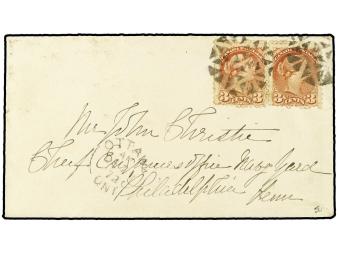 3 CENTS 3 3 CENTS 3
OTTAWA
ONT
Mr John Christie
Chief Engineers office Navy Yard
Philadelphia
Penn